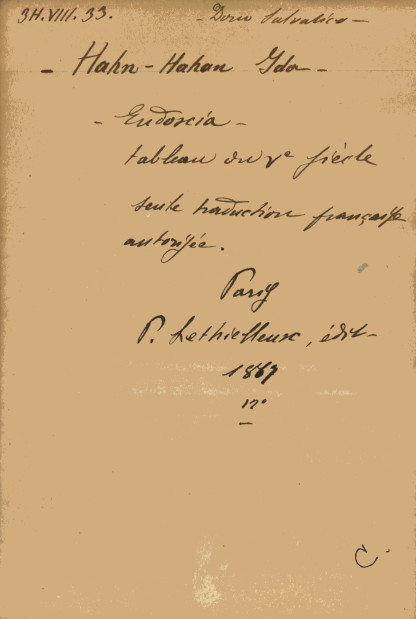 3H.VIII.33. - Dono Salvatico -
- Hahn-Hahan Ida -
- Eudoscia -
tableau du Ve siècle
seule traduction française
autorisée.
Paris
P. Lethielleux, édit-
1867
12°
C.